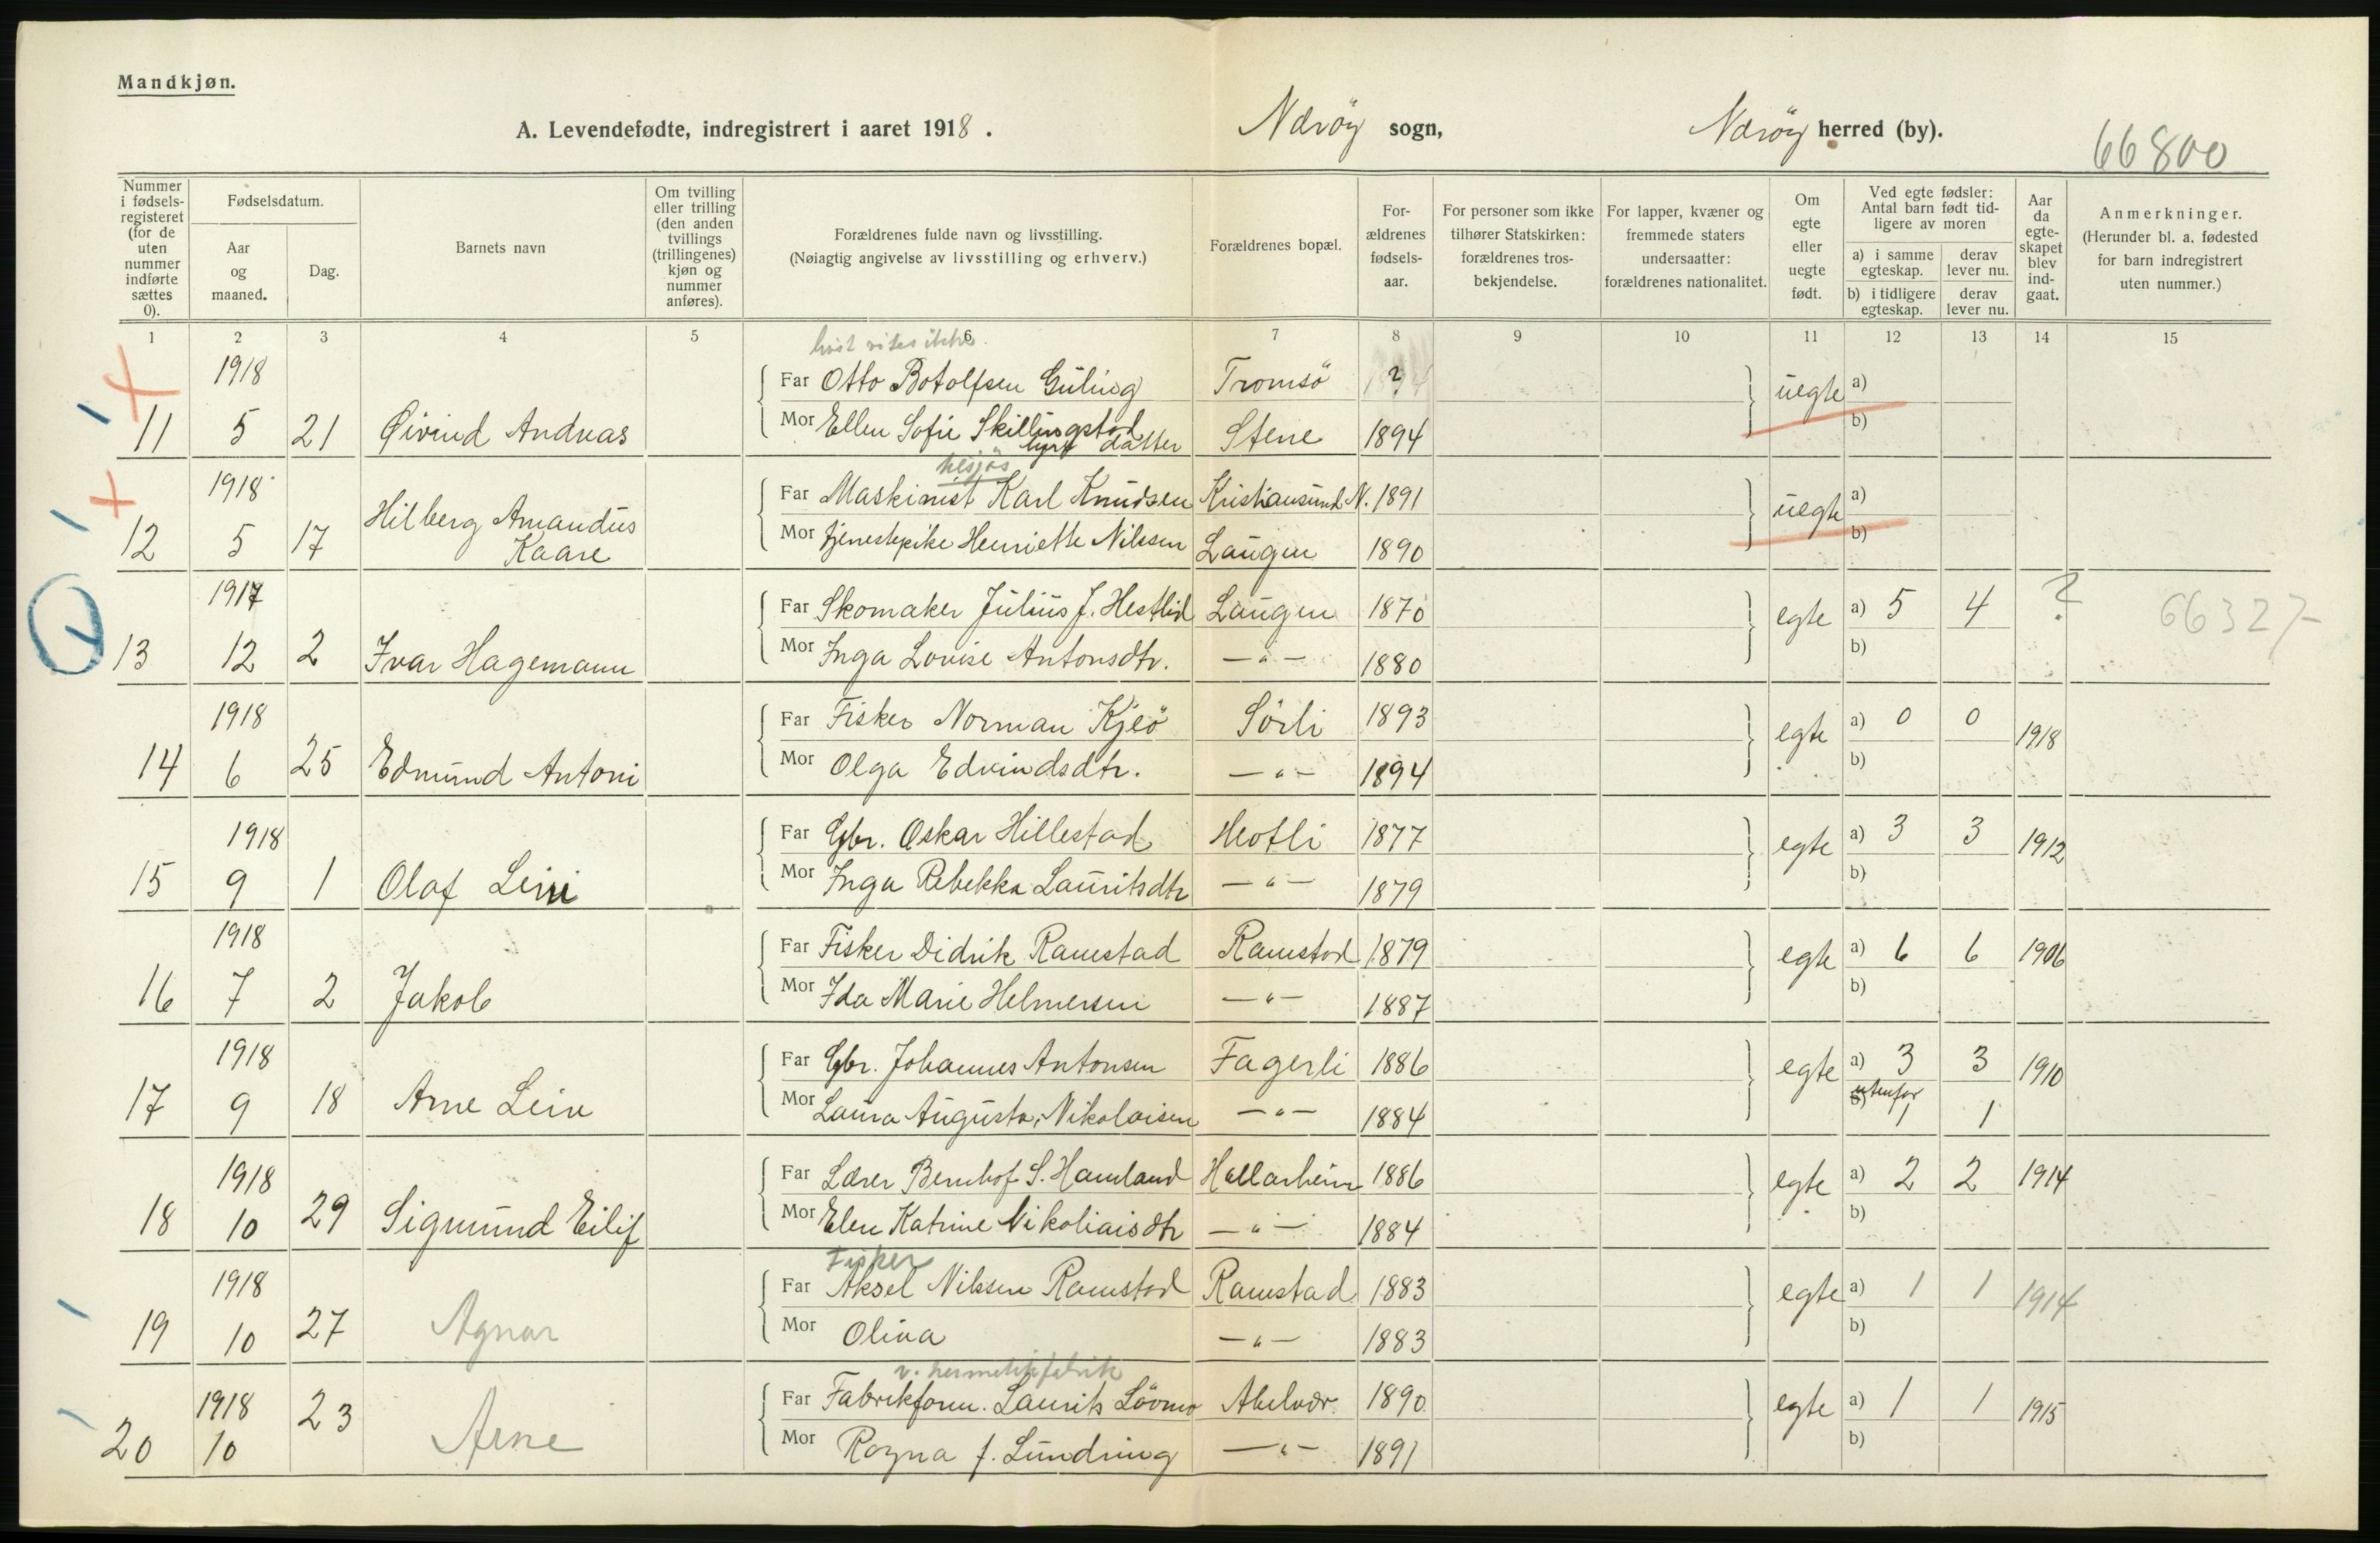 Mandkjøn.
A. Levendefødte, indregistrert i aaret 1918.
Næröy sogn,
Næröy herred (by).
66800
Nummer i fødsels-registeret (for de uten nummer indførte sættes 0).
Fødselsdatum.
Aar og maaned.
Dag.
Barnets navn
Om tvilling eller trilling (den anden tvillings (trillingenes) kjøn og nummer anføres).
Forældrenes fulde navn og livsstilling.
(Nøiagtig angivelse av livsstilling og erhverv.)
Forældrenes bopæl.
For-ældrenes fødsels-aar.
For personer som ikke tilhører Statskirken: forældrenes tros-bekjendelse.
For lapper, kvæner og fremmede staters undersaatter: forældrenes nationalitet.
Om egte eller uegte født.
Ved egte fødsler: Antal barn født tid-ligere av moren
a) i samme egteskap.
derav lever nu.
b) i tidligere egteskap.
derav lever nu.
Aar da egte-skapet blev ind-gaat.
Anmerkninger.
(Herunder bl. a. fødested for barn indregistrert uten nummer.)
1 2 3 4 5 6 7 8 9 10 11 12 13 14 15
livst vites ikke.
1918 Far Otto Botolfsen Guling Tromsö ? uegte a)
11 5 21 Øivind Andreas Mor Ellen Sofie Skillingstad Stene 1894 b)
datter
1918 Far Maskinist Karl Knudsen Kristiansund N. 1891 uegte a)
12 5 17 Hilberg Amandus Kaare Mor tjenestepike Henriette Nilssen Laugen 1890 b)
1917 Far Skomaker Julius J. Hestlid Laugen 1870 egte a) 5 4 ? 66327
13 12 2 Ivar Hagemann Mor Inga Lovise Antonsdtr. —"— 1880 b)
1918 Far Fisker Norman Kjeö Sörli 1893 egte a) 0 0 1918
14 6 25 Edmund Antoni Mor Olga Edvindsdtr. —"— 1894 b)
1918 Far Gbr. Oskar Hillestad Motli 1877 egte a) 3 3 1912
15 9 1 Olaf Leivi Mor Inga Rebekka Lauritsdtr —"— 1879 b)
1918 Far Fisker Didrik Ramstad Ramstad 1879 egte a) 6 6 1906
16 7 2 Jakob Mor Ida Marie Helmersen —"— 1887 b)
1918 Far Gbr. Johannes Antonsen Fagerli 1886 egte a) 3 3 1910
17 9 18 Arne Leiv Mor Laura Augusta Nikolaisen —"— 1884 b) utenfor 1 1
1918 Far Lærer Bernhof S. Hamland Hallarheim 1886 egte a) 2 2 1914
18 10 29 Sigmund Eilif Mor Elen Katrine Nikoliaisdtr —"— 1884 b)
Fisker
1918 Far Aksel Nilssen Ramstad Ramstad 1883 egte a) 1 1 1914
19 10 27 Agnar Mor Oliva —"— 1883 b)
v. hermetikfabrik
1918 23 Far Fabrikform. Laurits Lövmo Abelvær 1890 egte a) 1 1 1915
20 10 Arne Mor Ragna f. Lundring —"— 1891 b)